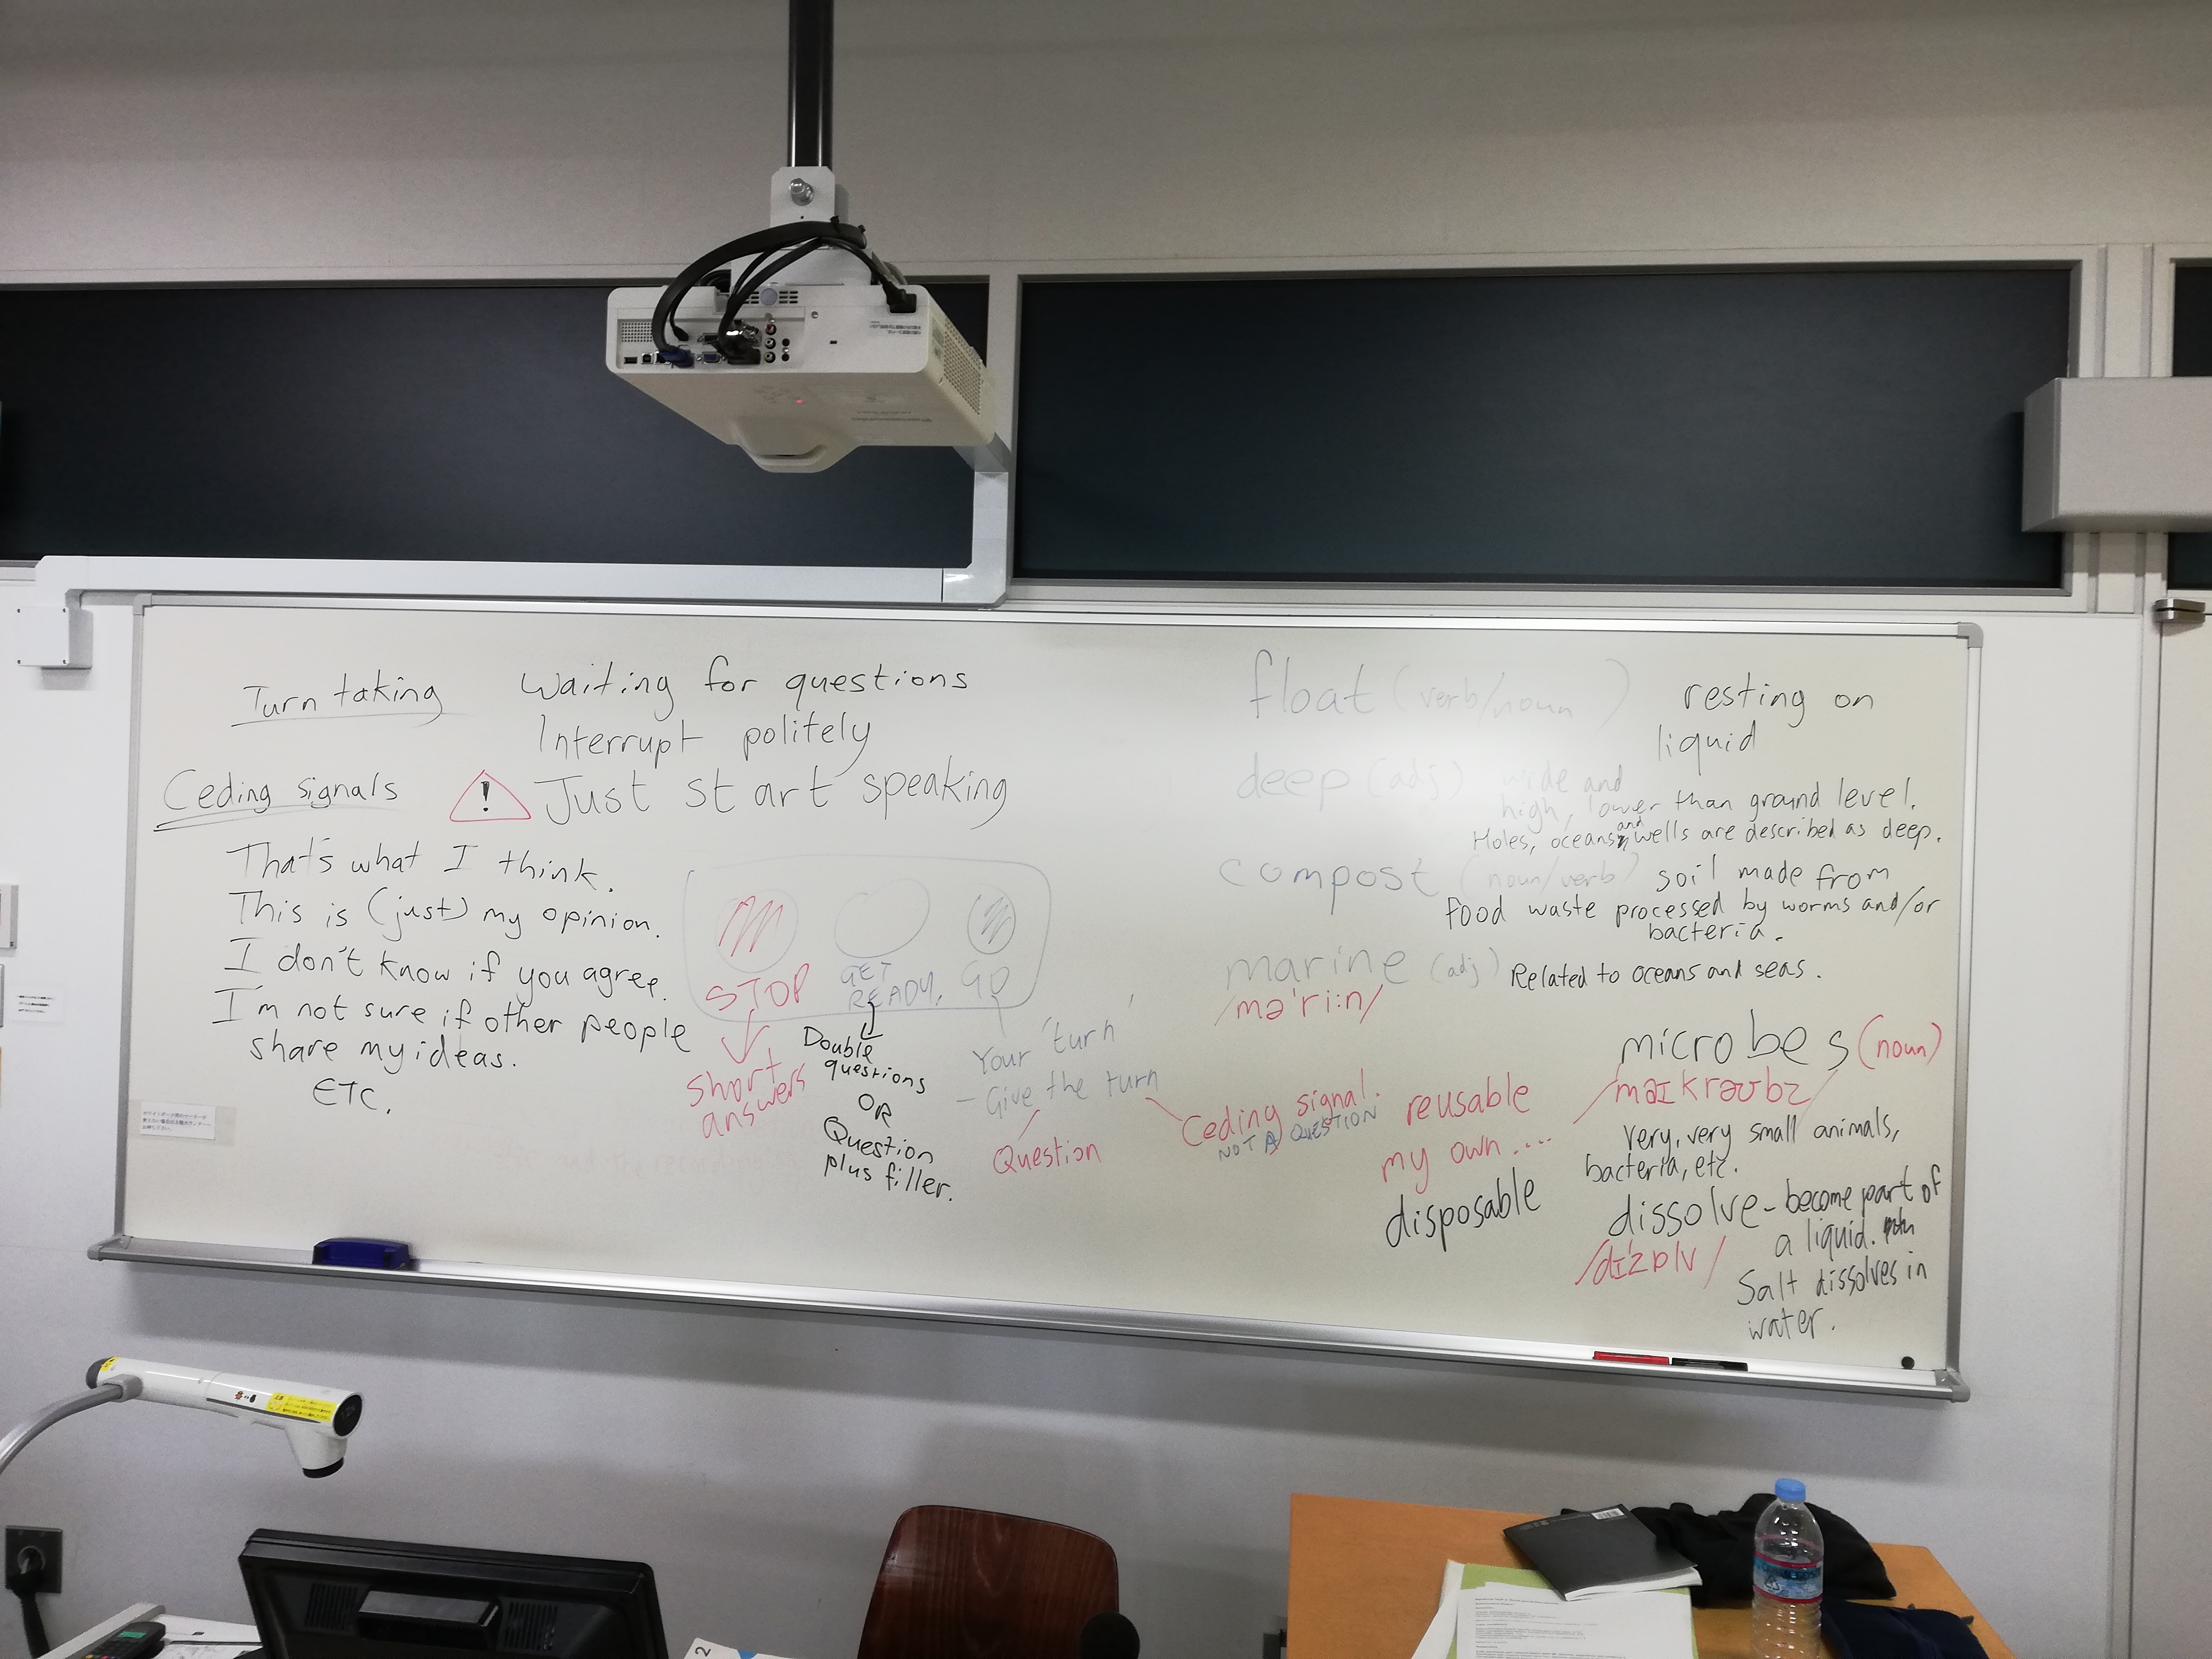 Turn taking
Waiting for questions
Interrupt politely
! Just start speaking
Ceding signals
That's what I think.
This is (just) my opinion.
I don't know if you agree.
I'm not sure if other people
share my ideas.
ETC.
STOP
GET
READY,
GO
short
answers
Double
questions
OR
Question
plus filler.
Your 'turn'
- Give the turn
Question
Ceding signal.
NOT A QUESTION
float (verb/noun) resting on
liquid
deep (adj) wide and
high, lower than ground level.
Holes, oceans and wells are described as deep.
compost (noun/verb) soil made from
food waste processed by worms and/or
bacteria.
marine (adj) Related to oceans and seas.
/məˈriːn/
reusable
my own ....
disposable
microbes (noun)
/maɪkrəʊbz/
very, very small animals,
bacteria, etc.
dissolve - become part of
a liquid.
/dɪˈzɒlv/
Salt dissolves in
water.
2